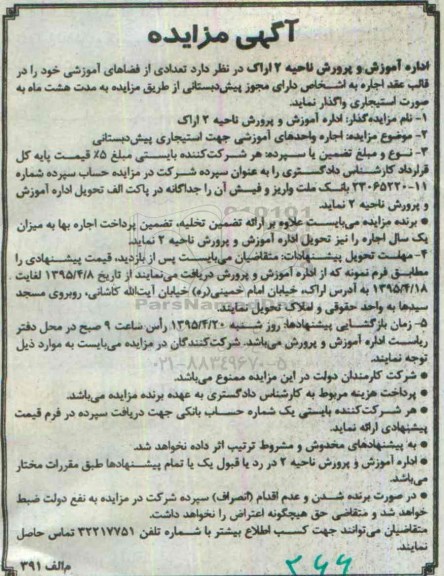 آگهی مزایده
اداره آموزش و پرورش ناحیه ۲ اراک در نظر دارد تعدادی از فضاهای آموزشی خود را در
قالب عقد اجاره به اشخاص دارای مجوز پیش‌دبستانی از طریق مزایده به مدت هشت ماه به
صورت استیجاری واگذار نماید.
۱- نام مزایده‌گذار: اداره آموزش و پرورش ناحیه ۲ اراک
۲- موضوع مزایده: اجاره واحدهای آموزشی جهت استیجاری پیش‌دبستانی
۳- نوع و مبلغ تضمین یا سپرده: هر شرکت‌کننده بایستی مبلغ ۵٪ قیمت پایه کل
قرارداد کارشناس دادگستری را به عنوان سپرده شرکت در مزایده حساب سپرده شماره
۲۳۰۶۵۲۲۰۰۱۱ بانک ملت واریز و فیش آن را جداگانه در پاکت الف تحویل اداره آموزش
و پرورش ناحیه ۲ نماید.
● برنده مزایده می‌بایست علاوه بر ارائه تضمین تخلیه، تضمین پرداخت اجاره بها به میزان
یک سال اجاره را نیز تحویل اداره آموزش و پرورش ناحیه ۲ نماید.
۴- مهلت تحویل پیشنهادات: متقاضیان می‌بایست پس از بازدید، قیمت پیشنهادی را
مطابق فرم نمونه که از اداره آموزش و پرورش دریافت می‌نمایند از تاریخ ۱۳۹۵/۴/۸ لغایت
۱۳۹۵/۴/۱۸ به آدرس اراک، خیابان امام خمینی(ره) خیابان آیت‌الله کاشانی، روبروی مسجد
سیدها به واحد حقوقی و املاک تحویل نمایند.
۵- زمان بازگشایی پیشنهادها: روز شنبه ۱۳۹۵/۴/۲۰ رأس ساعت ۹ صبح در محل دفتر
ریاست اداره آموزش و پرورش می‌باشد. شرکت‌کنندگان در مزایده می‌بایست به موارد ذیل
توجه نمایند.
۰۲۱-۸۸۳۴۹۶۷۰-۵
● شرکت کارمندان دولت در این مزایده ممنوع می‌باشد.
● پرداخت هزینه مربوط به کارشناس دادگستری به عهده برنده مزایده می‌باشد.
● هر شرکت‌کننده بایستی یک شماره حساب بانکی جهت دریافت سپرده در فرم قیمت
پیشنهادی ارائه نماید.
● به پیشنهادهای مخدوش و مشروط ترتیب اثر داده نخواهد شد.
● اداره آموزش و پرورش ناحیه ۲ در رد یا قبول یک یا تمام پیشنهادها طبق مقررات مختار
می‌باشد.
● در صورت برنده شدن و عدم اقدام (انصراف) سپرده شرکت در مزایده به نفع دولت ضبط
خواهد شد و متقاضی حق هیچگونه اعتراض را نخواهد داشت.
متقاضیان می‌توانند جهت کسب اطلاع بیشتر با شماره تلفن ۳۲۲۱۷۷۵۱ تماس حاصل
نمایند.
م‌الف ۳۹۱